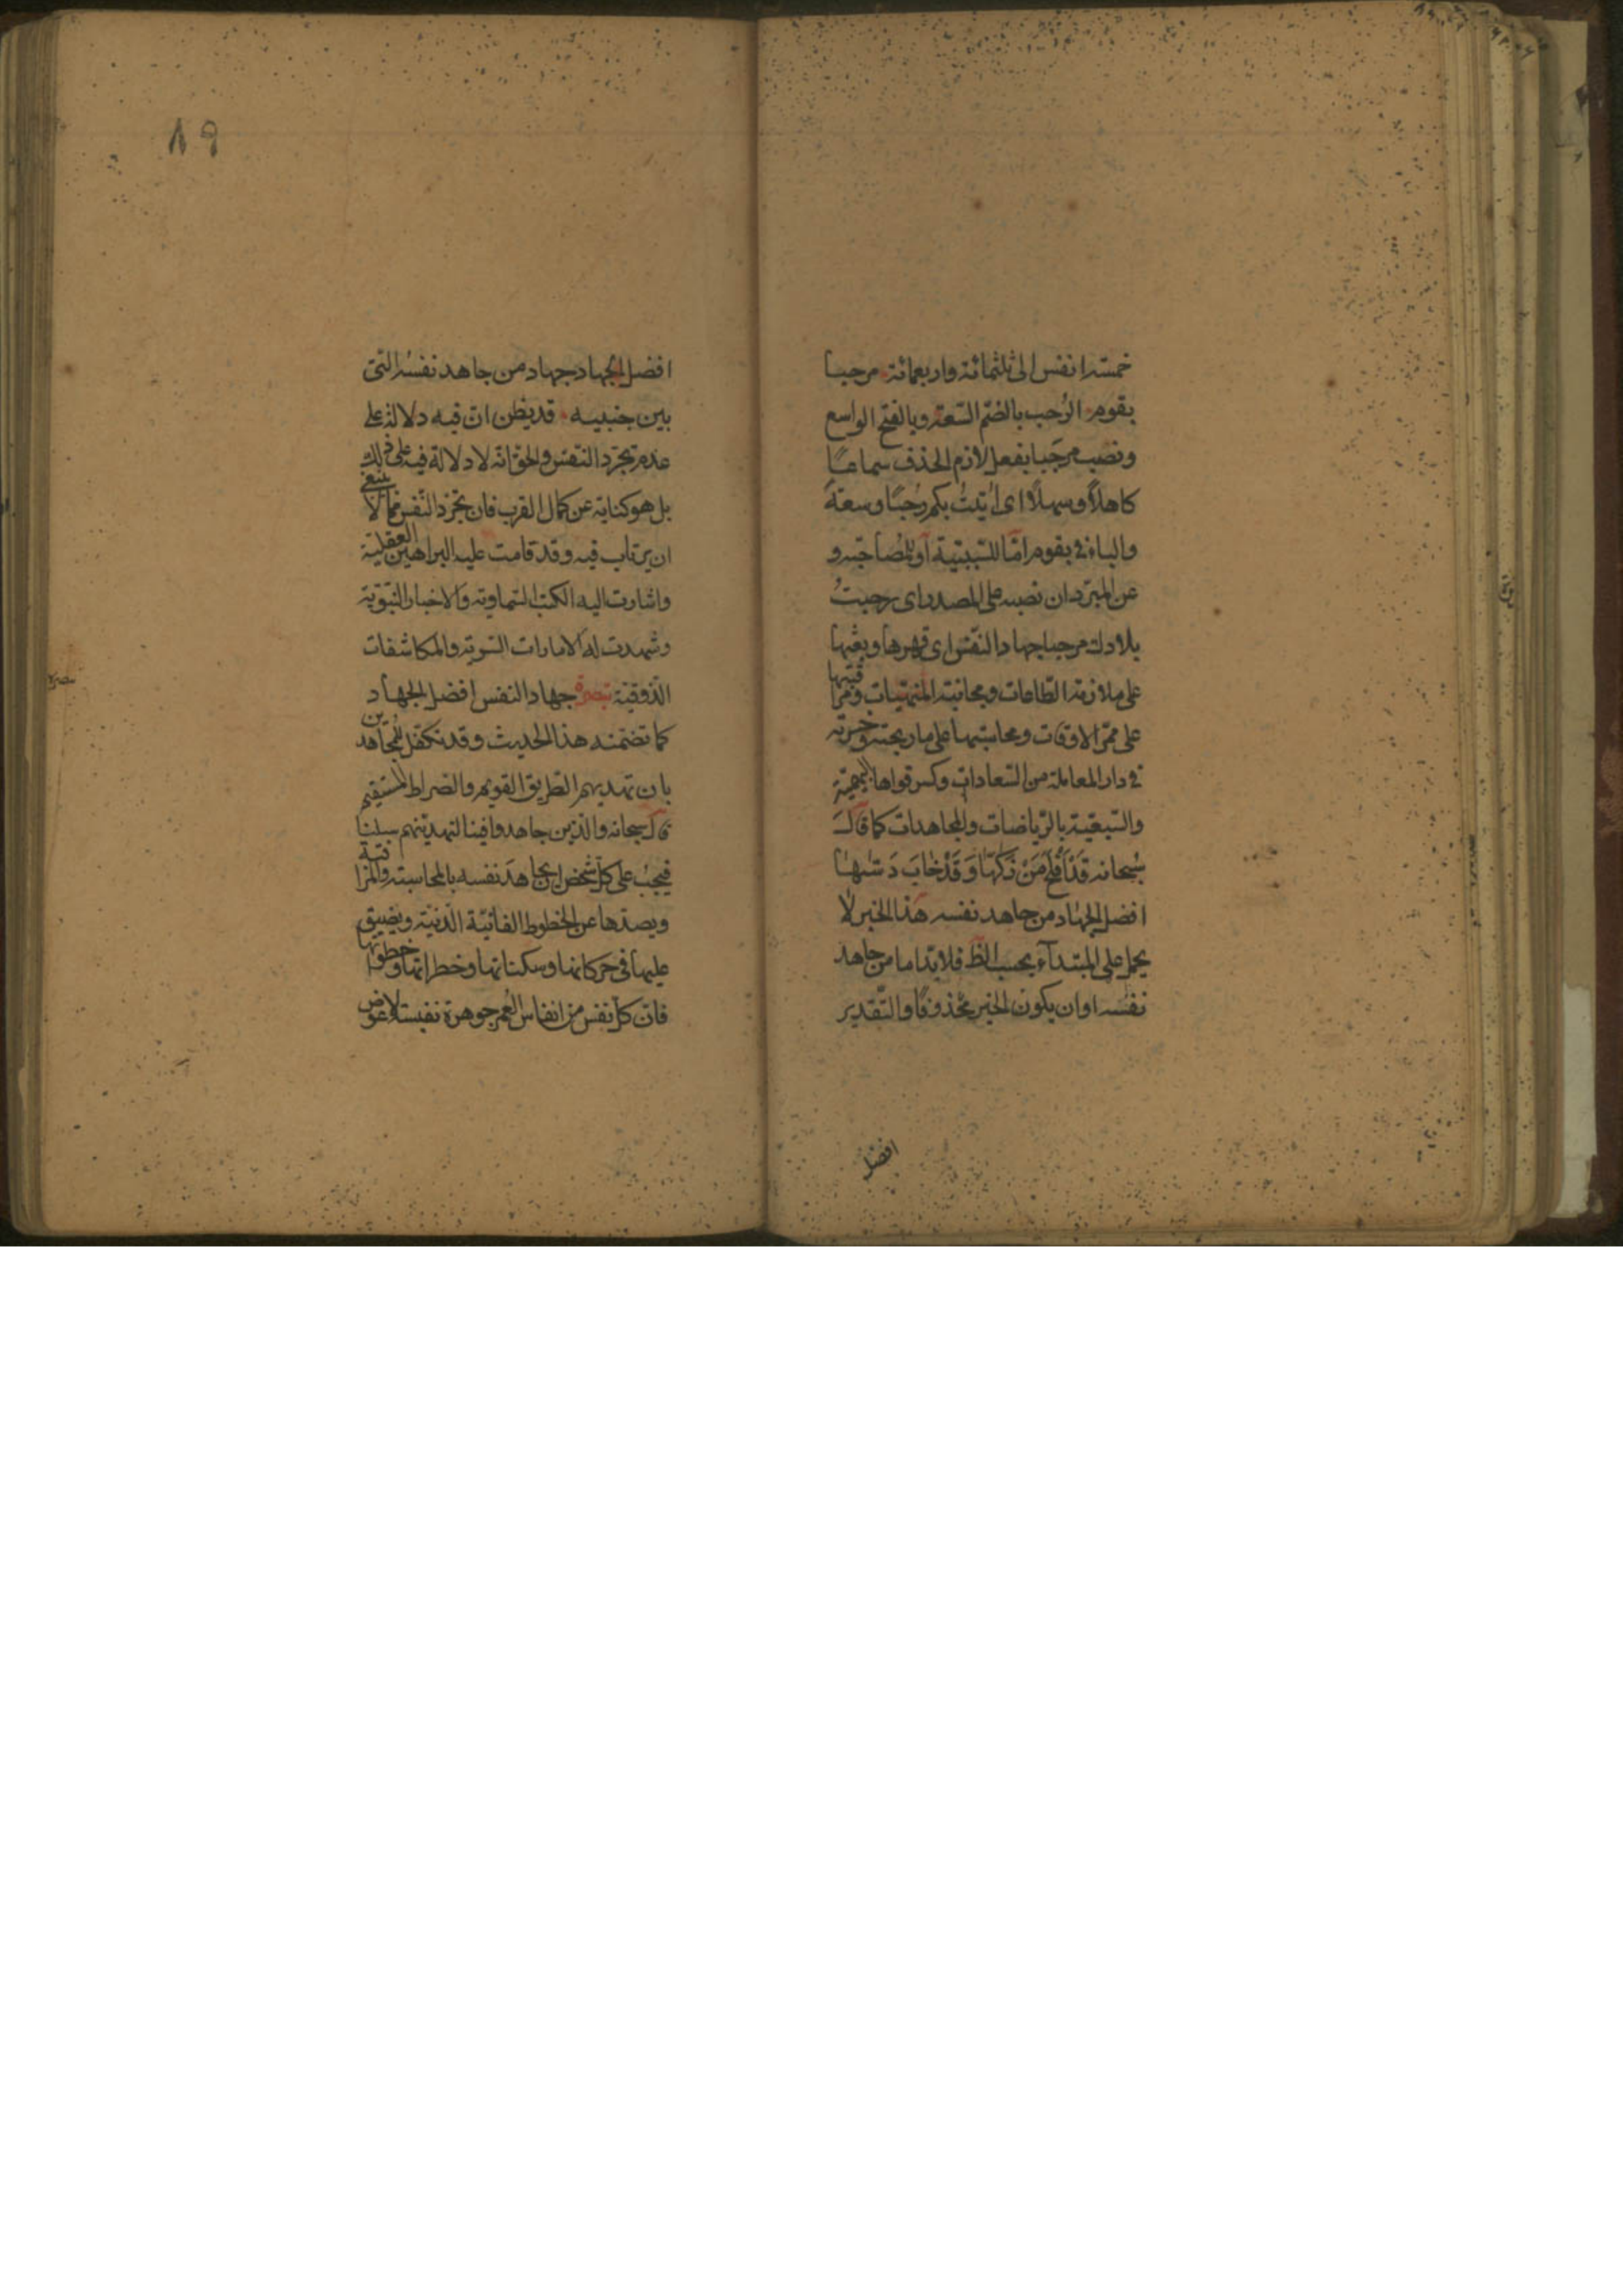 خمسة انفس الى ثلثمائة واربعمائة مرحبا
بقوم الرُحب بالضم السّعة وبالفتح الواسع
ونصب مرحَبا بفعل لازم الحذف سماعًا
كاهلاً وسهلاً اى اُتيتُ بكم رُحبًا وسعةً
والباء فى بقوم امّا للسّببيّة او للمُصاحبة و
عن المبرّد ان نصبه على المصدر اى رحبتُ
بلادك مرحبا جهاد النّفس اى قهرها وبعثها
على ملازمة الطّاعات ومجانبة المنهيّات ومراقبتها
على ممرّ الاوقات ومحاسبتها على ما ربحته وخسرته
فى دار المعاملة من السّعادات وكسر قواها البهيميّة
والسّبعيّة بالرّياضات والمجاهدات كما قال
سُبحانه قَدْ اَفْلَحَ مَنْ زَكّٰيها وَقَدْ خابَ دَسّٰيها
افضل الجهاد من جاهد نفسه هذا الخبر لا
يحمل على المبتدآء بحسب الظ فلابدّ اما من جاهد
نفسه او ان يكون الخبر محذوفًا والتّقدير
افضل
٨٩
افضل الجهاد جهاد من جاهد نفسُه التى
بين جنبيه قد يظن انّ فيه دلالة على
عدم تجرّد النّفس والحق انّه لا دلالة فيه على ذلك
بل هو كناية عن كمال القرب فان تجرّد النّفس ممّا لا ينبغى
ان يرتاب فيه وقد قامت عليه البراهين العقلية
واشارت اليه الكتب السّماويّة والاخبار النّبويّة
وشهدت له الامارات السّرية والمكاشفات
الذّوقيّة تبصرة جهاد النفس افضل الجهاد
كما تضمّنه هذا الحديث وقد تكفّل للمُجاهدين
بان تهديهم الطّريق القويم والصّراط المستقيم
قال سبحانه والّذين جاهدوا فينا لنهدينّهم سبلنا
فيجبُ على كلّ شخص ان يجاهدَ نفسه بالمحاسبة والمراقبة
ويصدّها عن الحظوظ الفانيّة الدّنيّة ويضيق
عليها فى حركاتها وسكناتها وخطراتها وخطوتها
فانّ كل نفس من انفاس العُمر جوهرة نفيسة لا عوض